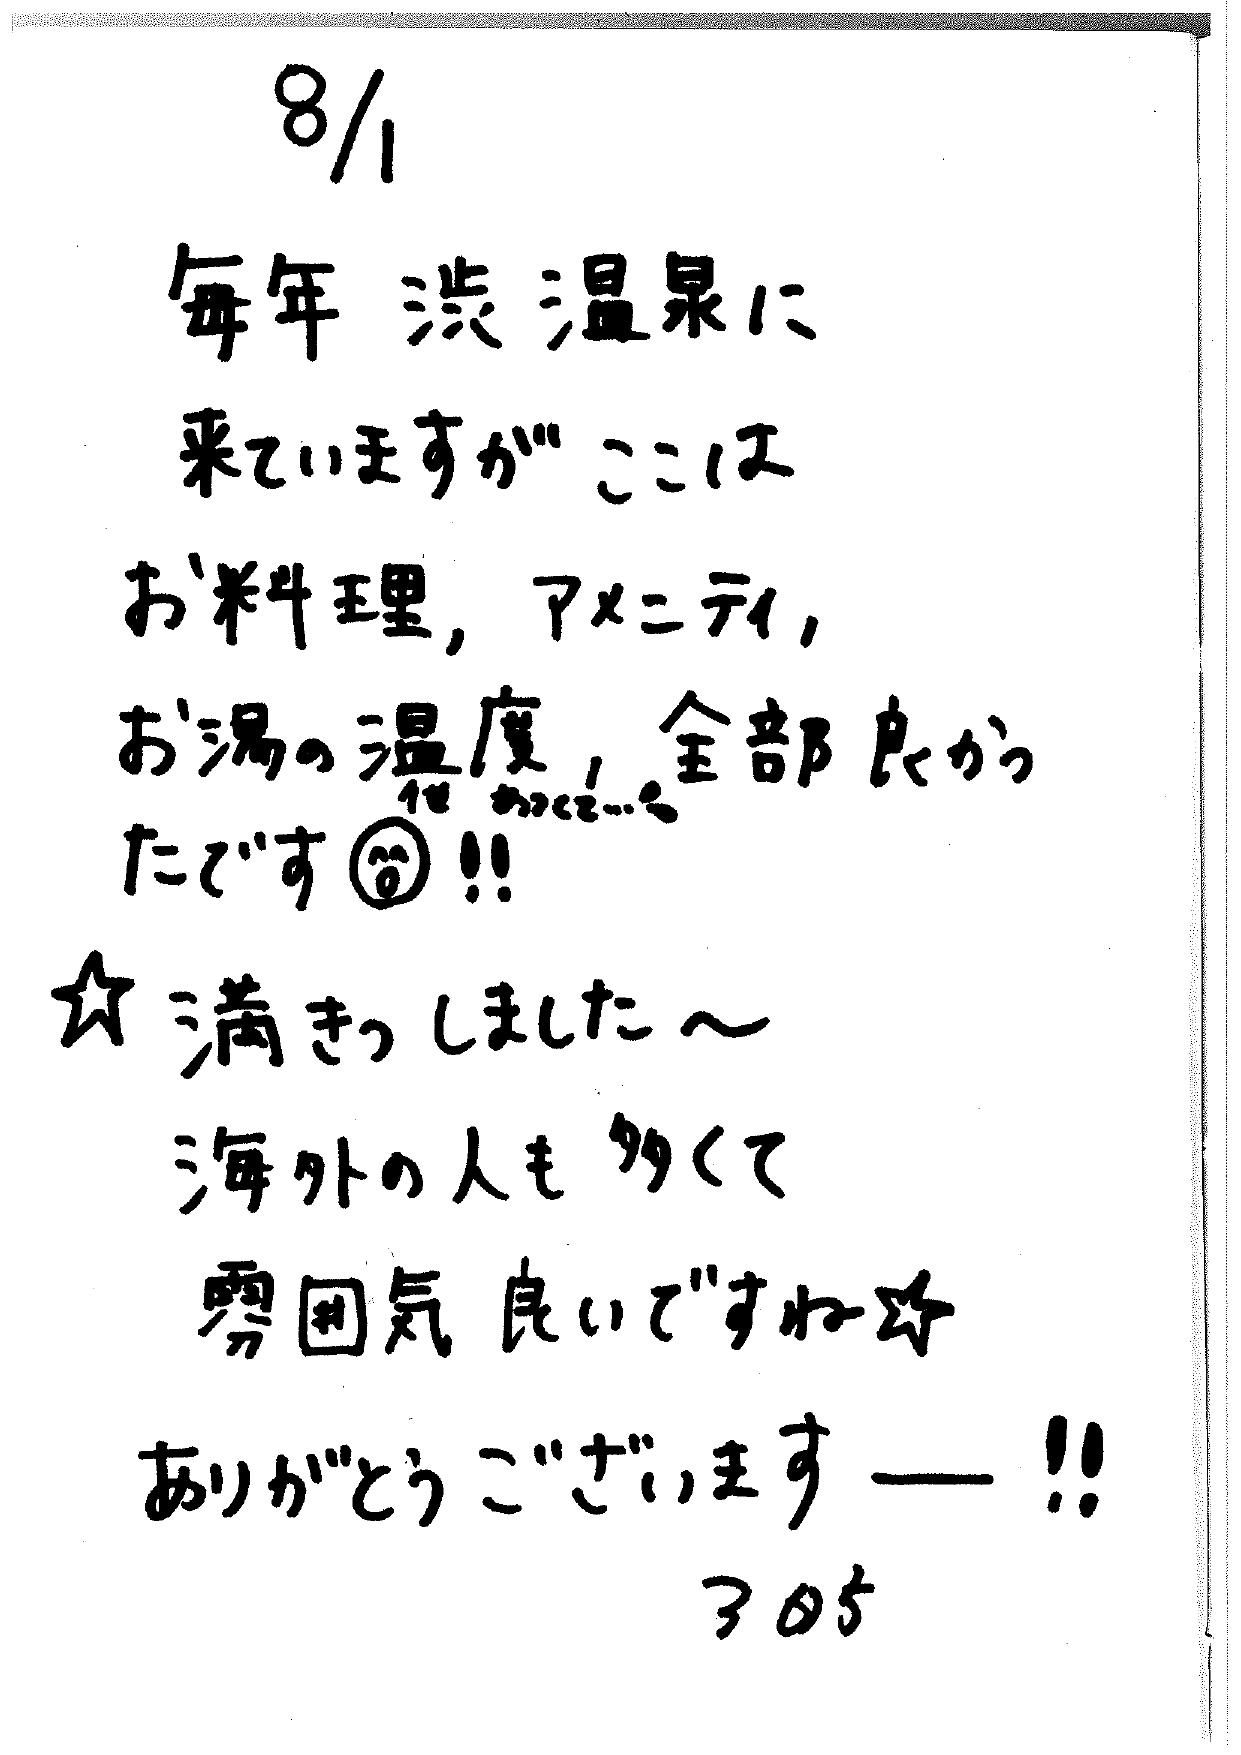 8/1
毎年 渋温泉に
来ていますが ここは
お料理, アメニティ,
お湯の温度, 全部良かっ
他 あつくて…
たです!!
☆ 満きつしました〜
海外の人も多くて
雰囲気良いですね☆
ありがとうございますー!!
305